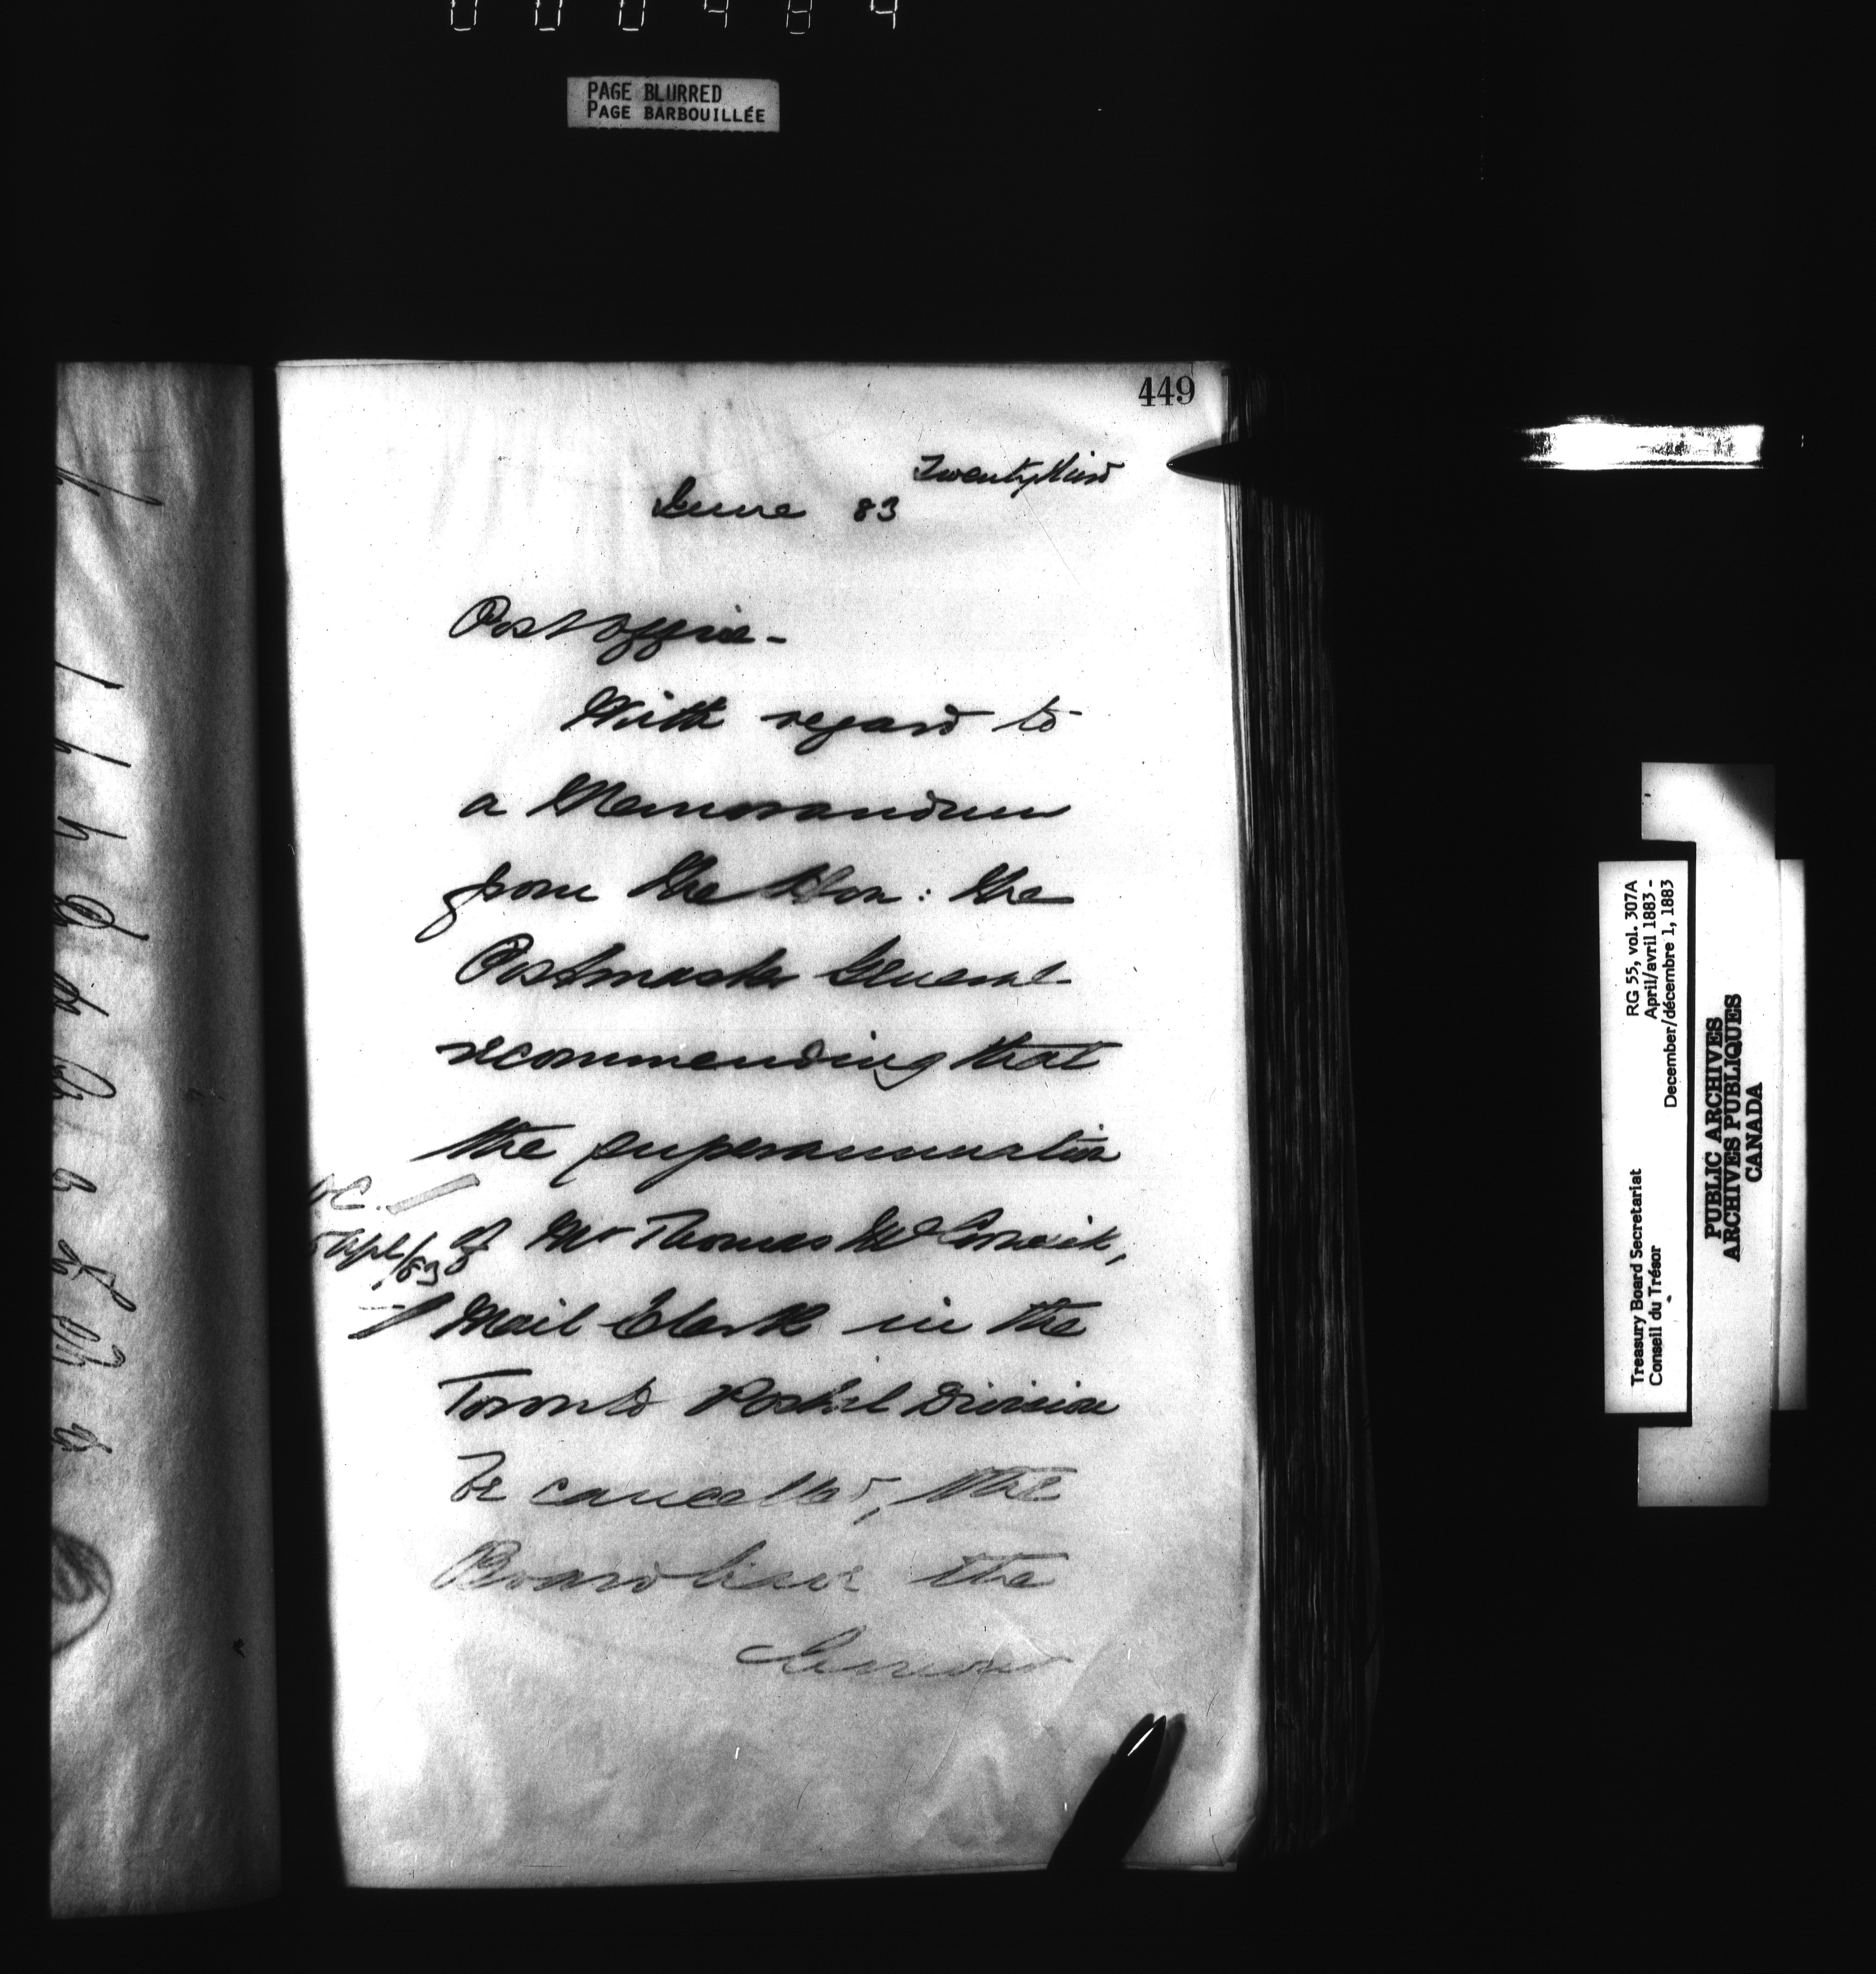 PAGE BLURRED
PAGE BARBOUILLÉE
449
Twenty third
June 83
Post Office -
With regard to
a Memorandum
from the Hon: the
Postmaster General
recommending that
the superannuation
of Mr Thomas
Mail Clerk in the
Toronto Postal Division
be cancelled, the
Board have the
honor
Treasury Board Secretariat
Conseil du Trésor
RG 55, vol. 307A
April/avril 1883 -
December/décembre 1, 1883
PUBLIC ARCHIVES
ARCHIVES PUBLIQUES
CANADA